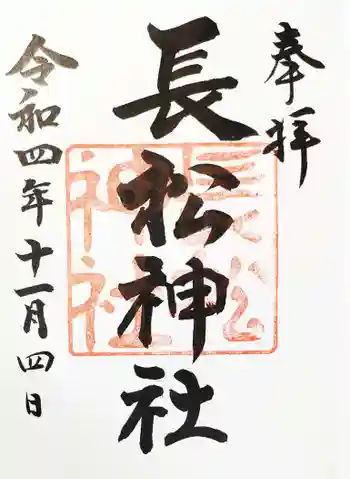 奉拝
長松神社
長松神社
令和四年十一月四日